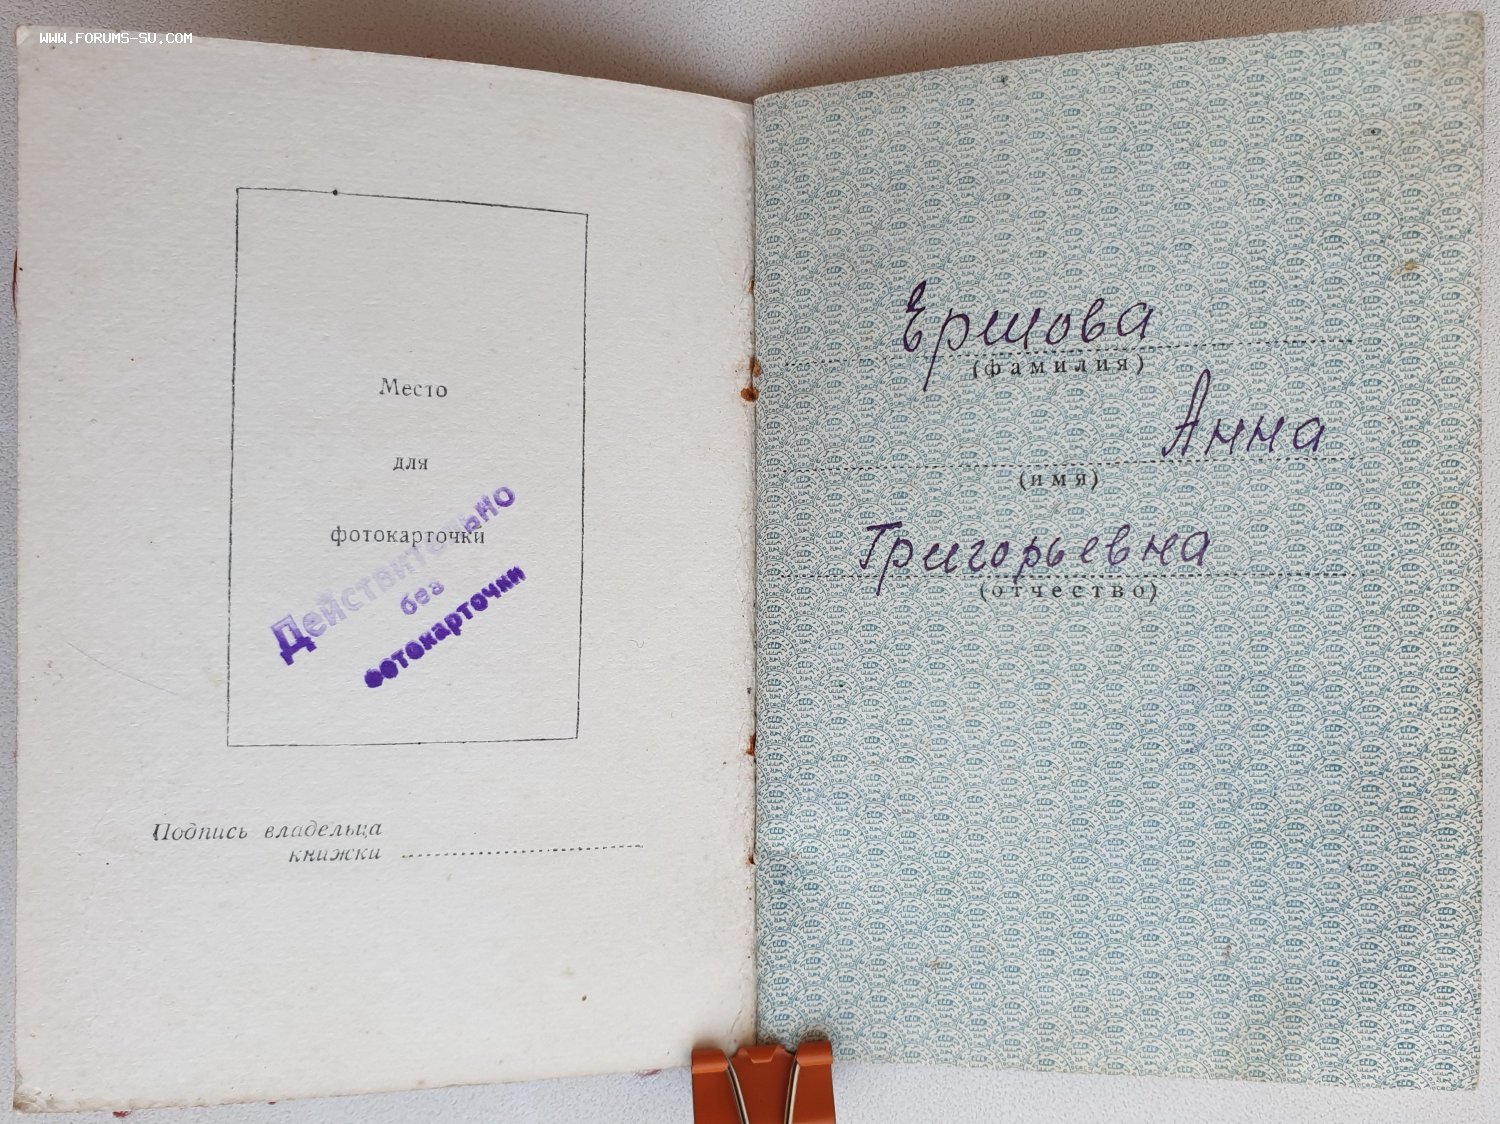 WWW.FORUMS-SU.COM
Место
для
фотокарточки
Действительно
без
фотокарточки
Подпись владельца
книжки
Ершова
(фамилия)
Анна
(имя)
Григорьевна
(отчество)